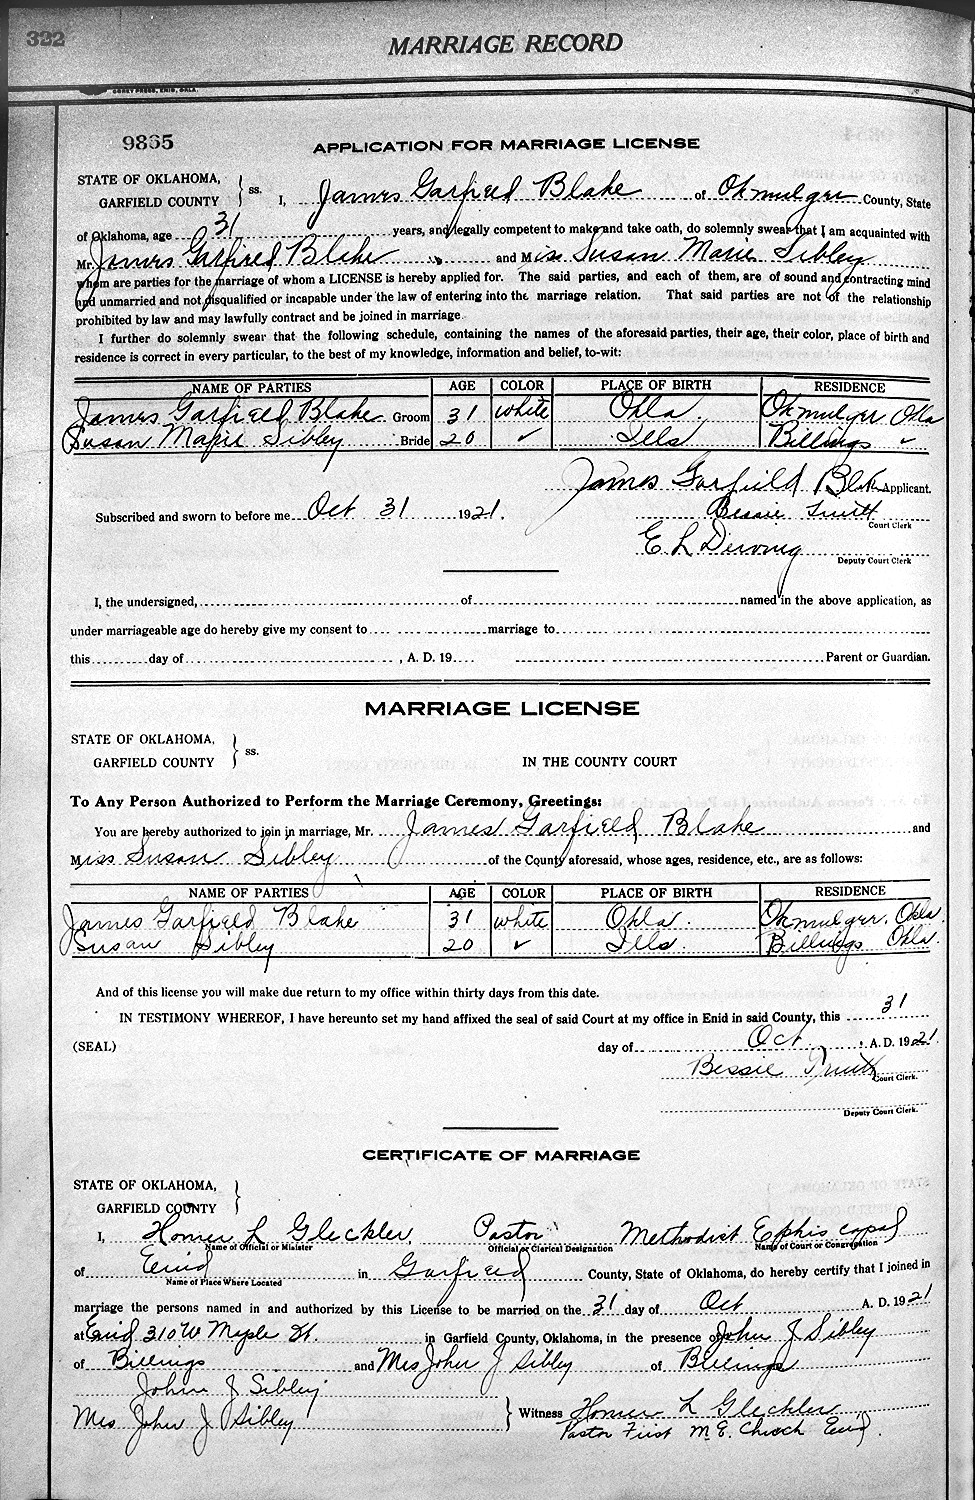 322
MARRIAGE RECORD
COVEY PRESS, ENID, OKLA.
9865
APPLICATION FOR MARRIAGE LICENSE
STATE OF OKLAHOMA,
GARFIELD COUNTY } ss. I, James Garfield Blake of Okmulgee County, State
of Oklahoma, age 31 years, and legally competent to make and take oath, do solemnly swear that I am acquainted with
Mr. James Garfield Blake and Miss Susan Marie Sibley
whom are parties for the marriage of whom a LICENSE is hereby applied for. The said parties, and each of them, are of sound and contracting mind
and unmarried and not disqualified or incapable under the law of entering into the marriage relation. That said parties are not of the relationship
prohibited by law and may lawfully contract and be joined in marriage.
I further do solemnly swear that the following schedule, containing the names of the aforesaid parties, their age, their color, place of birth and
residence is correct in every particular, to the best of my knowledge, information and belief, to-wit:
NAME OF PARTIES AGE COLOR PLACE OF BIRTH RESIDENCE
James Garfield Blake Groom 31 white Okla. Okmulgee Okla
Susan Marie Sibley Bride 20 ✓ Ills Billings ✓
James Garfield Blake Applicant.
Subscribed and sworn to before me Oct 31 1921. Bessie Truitt
Court Clerk
E L Dewing
Deputy Court Clerk
I, the undersigned, of named in the above application, as
under marriageable age do hereby give my consent to marriage to
this day of , A. D. 19 Parent or Guardian.
MARRIAGE LICENSE
STATE OF OKLAHOMA,
GARFIELD COUNTY } ss. IN THE COUNTY COURT
To Any Person Authorized to Perform the Marriage Ceremony, Greetings:
You are hereby authorized to join in marriage, Mr. James Garfield Blake and
Miss Susan Sibley of the County aforesaid, whose ages, residence, etc., are as follows:
NAME OF PARTIES AGE COLOR PLACE OF BIRTH RESIDENCE
James Garfield Blake 31 white Okla. Okmulgee, Okla.
Susan Sibley 20 ✓ Ills. Billings Okla.
And of this license you will make due return to my office within thirty days from this date.
IN TESTIMONY WHEREOF, I have hereunto set my hand affixed the seal of said Court at my office in Enid in said County, this 31
(SEAL) day of Oct , A. D. 1921.
Bessie Truitt
Court Clerk.
Deputy Court Clerk.
CERTIFICATE OF MARRIAGE
STATE OF OKLAHOMA,
GARFIELD COUNTY }
I, Homer L Gleckler, Pastor Methodist Ephiscopal
Name of Official or Minister Official or Clerical Designation Name of Court or Congregation
of Enid in Garfield County, State of Oklahoma, do hereby certify that I joined in
Name of Place Where Located
marriage the persons named in and authorized by this License to be married on the 31 day of Oct A. D. 1921
at Enid 310 W Maple St. in Garfield County, Oklahoma, in the presence of John J Sibley
of Billings and Mrs John J Sibley of Billings
John J Sibley
Mrs John J Sibley } Witness Homer L Gleckler
Pastor First M.E. Church Enid.